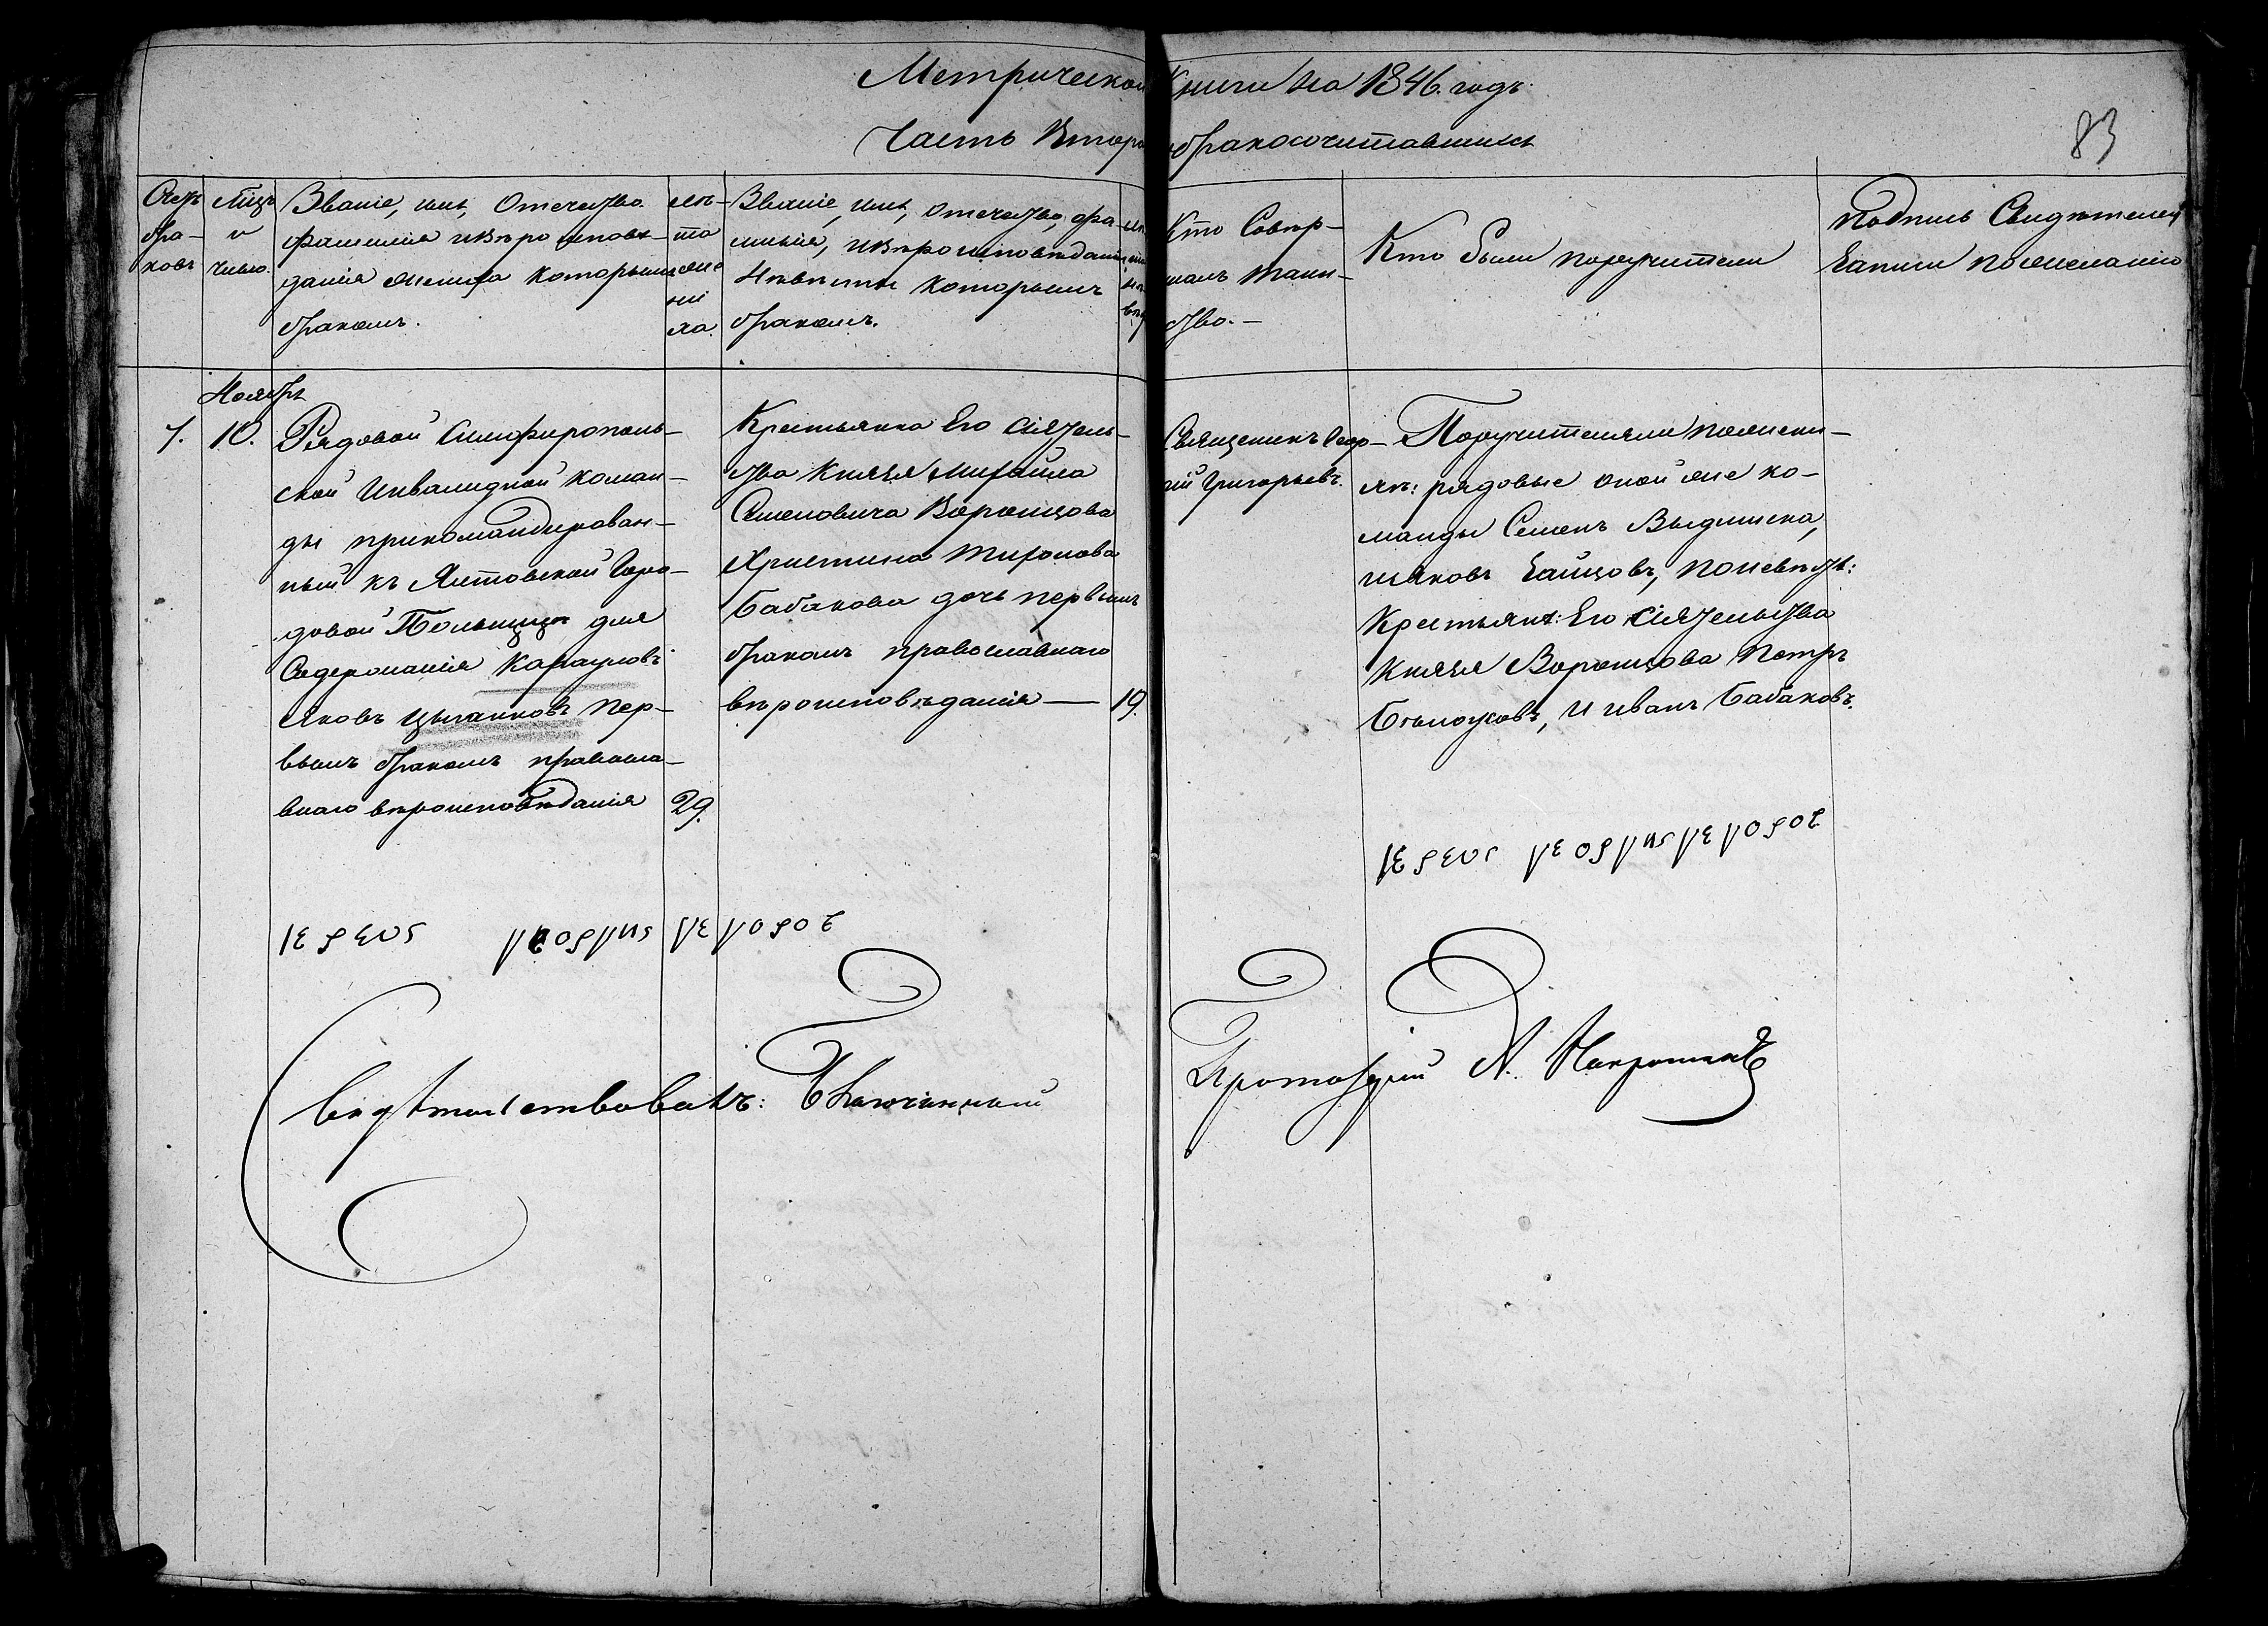 Метрической Книги на 1846. годъ.
Часть Втора бракосочитавшихся
83
Счетъ
бра-
ковъ
Мѣсяцъ
и
Число.
Званіе, имя, Отечество
фамилія и Вѣроисповѣ-
данія жениха которымъ
бракомъ.
лѣ-
та
же
ни
ха.
Званіе, имя, Отечество, фа-
милія, и Вѣроисповѣданія
Невѣсты которымъ
бракомъ.
Кто Совер-
шалъ таин-
ство.
Кто были поручители
Подпись Свидѣтелей
Записи по желанію
Ноябрь
7.
10.
Рядовой Симферополь-
ской Инвалидной коман-
ды прикомандирован-
ный къ Ялтовской Горо-
довой Полиціи для
Содержанія Карауловъ
Яковъ Цыганковъ пер-
вымъ бракомъ правосла-
внаго вѣроисповѣданія
29.
Крестьянка Его Сіятель-
ства Князя Михаила
Семеновича Воронцова
Христина Миронова
Бабакова дочь первымъ
бракомъ православнаго
вѣроисповѣданія
19.
Священникъ Геор-
гій Григорьевъ.
Поручителями по жени-
хѣ: рядовые оной же ко-
манды Семенъ
Яковъ Зайцовъ, по невѣстѣ:
Крестьяне: Его Сіятельства
Князя Воронцова Петръ
Бѣлоусовъ, и Иванъ Бабаковъ.
Свидѣтельствовалъ: Благочинный
Протоіерей